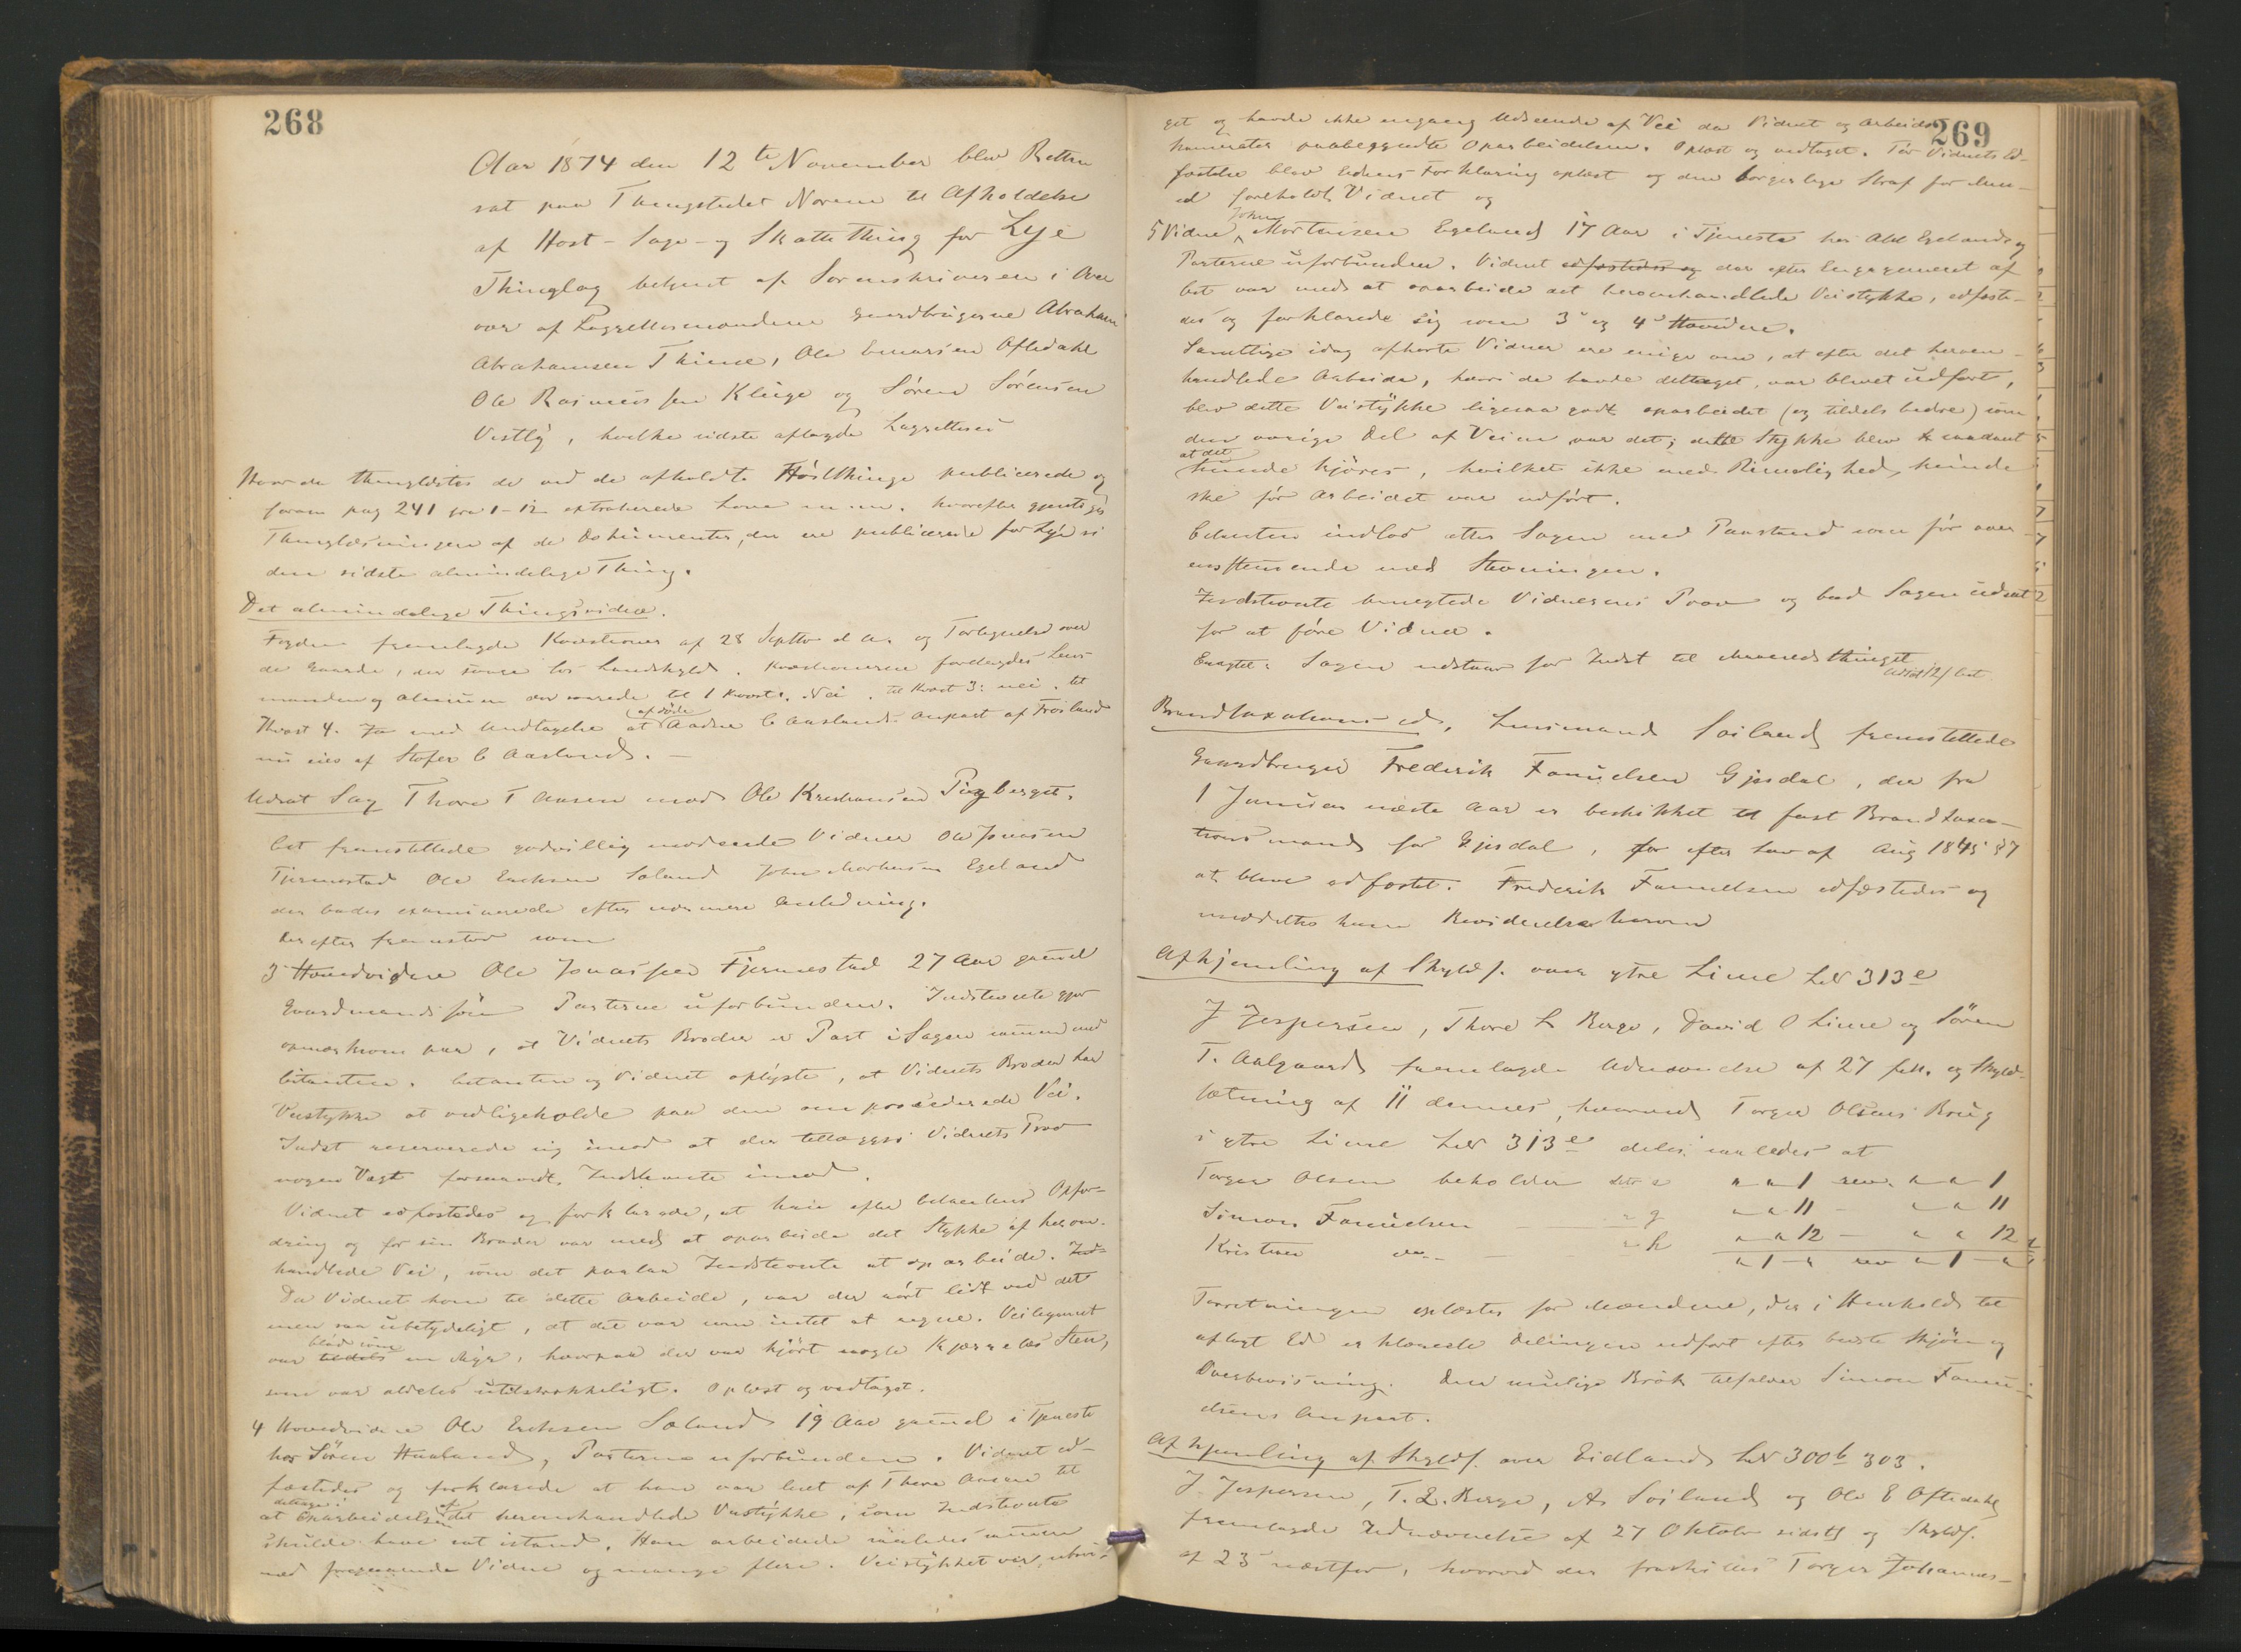 268
Aar 1874 den 12te November blev Retten
sat paa Thingstedet Noreim til Afholdelse
af Høst- Sage- og Skatte Thing for Lye
Thinglag betjent af Sorenskriveren i Over
vær af Laugrettesmændene Gaardbrugerne Abraham
Abrahamsen Thime, Ole Einarsen Oftedahl
Ole Rasmussen Kluge og Søren Sørensen
Vestly, hvilke sidste aflagde Laugretteseed
Hvor da thinglæstes de ved de afholdte Høstthinge publicerede og
foran pag 241 fra 1-12 extraherede Love m. m. hvorefter gjentoges
Thinglæsningen af de Dokumenter, der ere publicerede for Lye si
den sidste almindelige Thing.
Det almindelige Thingsvidne.
Fogden fremlagde Kvæstioner af 28 Septbr d. A. og Fortegnelse over
de Gaarde, der svare løs Landskyld. Kvæstionerne forelagdes Lens
manden og Almuen der svarede til 1 Kvæst: Nei. til Kvæst 3: nei. til
Kvæst 4. Ja med Undtagelse at afdøde Aadne C Aaslands Anpart af Frøiland
nu eies af Stofer C Aasland. —
Udsat Sag Thore T Aasen mod Ole Kristiansen Pigberget.
Cit fremstillede godvillig mødende Vidner Ole Jonasen
Fjermestad Ole Erichsen Søland John Mortensen Egeland
der bades examinerede efter nærmere Anledning.
Derefter fremstod som
3 Hovedvidne Ole Jonassen Fjermestad 27 Aar gammel
Gaardmandssøn Parterne uforbunden. Indstevnte gjør
opmærksom paa, at Vidnets Broder er Part i Sagen sammen med
Citanten. Citanten og Vidnet oplyste, at Vidnets Broder har
Veistykke at vedligeholde paa den omprocederede Vei.
Indst reserverede sig imod at der tillægges Vidnets Prov
nogen Vægt forsaavidt. Indstevnte imod.
Vidnet edfæstedes og forklarede, at han efter Citantens Opfor-
dring og for sin Broder var med at oparbeide det Stykke af herom-
handlede Vei, som det paalaa Indstevnte at oparbeide.
Da Vidnet kom til dette Arbeide, var der gjort lidt ved det
men saa ubetydeligt, at det var som intet at regne. Veilegemet
var tildels blød som en Myr, hvorpaa der var kjørt nogle Kjærrelæs Sten,
som var aldeles utilstrækkeligt. Oplæst og vedtaget.
4 Hovedvidne Ole Erichsen Søland 19 Aar gammel i Tjeneste
hos Søren Haaland, Parterne uforbunden. Vidnet ed-
fæstedes og forklarede at han var leiet af Thore Aasen til
at deltage i Oparbeidelsen af det heromhandlede Veistykke, som Indstevnte
skulde have sat istand. Han arbeidede saaledes sammen
med foregaaende Vidne og mange flere. Veistykket var ubrui-
269
get og havde ikke engang Udseende af Vei da Vidnet og Arbeids
kamerater paabegyndte Oparbeidelsen. Oplæst og vedtaget. Før Vidnets Ed-
fæstelse blev Edens Forklaring oplæst og den borgerlige Straf for Men-
ed foreholdt Vidnet og
5 Vidne John Mortensen Egeland 17 Aar i Tjeneste hos Abel Egeland og
Parterne uforbunden. Vidnet edfæstedes og der efter Engagement af
Cit var med at oparbeide det heromhandlede Veistykke, edfæste-
des og forklarede sig som 3' og 4' Hovidne.
Samtlige idag afhørte Vidner ere enige om, at efter det herom-
handlede Arbeide, hvori de havde deltaget, var blevet udført,
blev dette Veistykke ligesaa godt oparbeidet (og tildels bedre) som
den øvrige Del af Veien var det; dette Stykke blev saadant
at det kunde kjøres, hvilket ikke med Rimelighed kunde
ske før Arbeidet var udført.
Citanten indlod atter Sagen med Paastand som før over
ensstemmende med Stevningen.
Indstevnte benegtede Vidnernes Prov og bad Sagen udsat
for at føre Vidner.
Eragtet: Sagen udstaar for Indst til Maanedsthinget
Brandtaxations ed. Lensmand Soiland fremstillede
Gaardbruger Frederik Samuelsen Gjesdal, der fra
1 Januar næste Aar er beskikket til fast Brandtaxa-
tionsmand for Gjesdal, for efter Lov af Aug 1845 § 7
at blive edfæstet. Frederik Samuelsen edfæstedes og
meddeltes ham Bevidnelse herom
Afhjemling af Skyldf. over ytre Lime Lno 313e
J Jespersen, Thore L Berge, David O Lime og Søren
T. Aalgaard fremlagde Udnævnelse af 27 f. M. og Skyld-
sætning af 11 dennes, hvorved Torger Olsens Brug
i ytre Lime Lno 313e deles saaledes at
Torger Olsen beholder " " 1 rev. " " 1
Simon Samuelsen — g " " 11 — " " 11
Kristian do — h " " 12 — " " 12
" 1 — " rev " 1 — "
Forretningen oplæstes for Mændene, der i Henhold til
aflagt Ed erklærede Delingen udført efter bedste Skjøn og
Overbevisning. Den mulige Brøk tilfalder Simon Samu-
elsens Anpart.
Afhjemling af Skyldf. over Eidland Lno 300b 303.
J Jespersen, T. L. Berge, As Soiland og Ole E Oftedahl
fremlagde Udnævnelse af 27 Oktober sidstl og Skyldf.
af 23 næstfør, hvorved der fraskilles Torger Johannes-